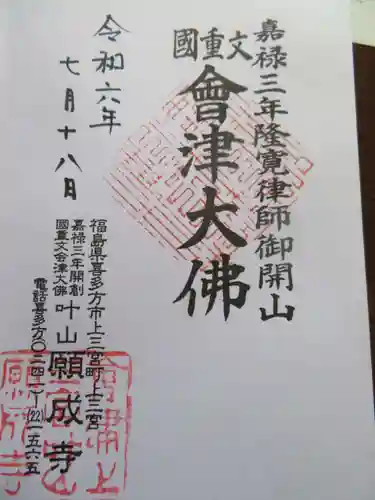 嘉禄三年隆寛律師御開山
國重文
會津大佛
令和六年
七月十八日
福島県喜多方市上三宮町上三宮
嘉禄三年開創
國重文会津大佛
叶山
願成寺
電話喜多方〇二四一ー(22)一五六五